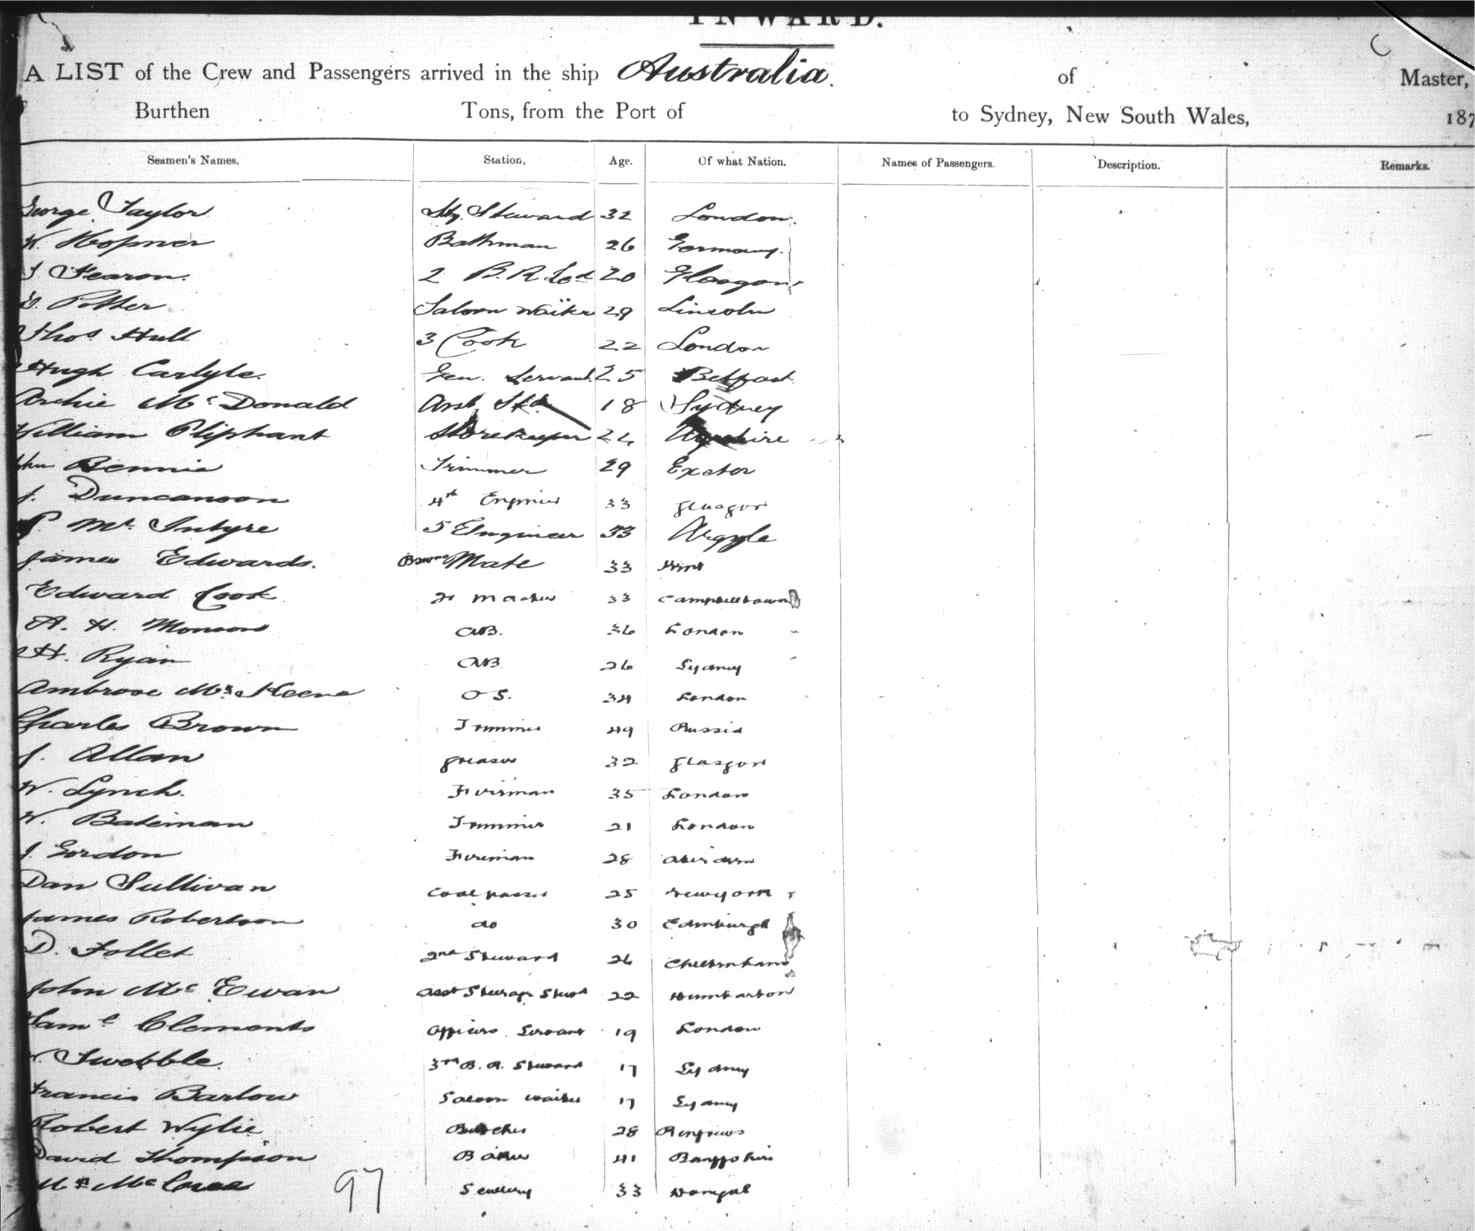 INWARD.
A LIST of the Crew and Passengers arrived in the ship Australia. of Master,
Burthen Tons, from the Port of to Sydney, New South Wales, 187
Seamen's Names. Station. Age. Of what Nation. Names of Passengers. Description. Remarks.
George Taylor Steward 32 London.
Hopner Bathman 26 Germany.
J Fearon. 2 B. R. 20 Glasgow
Potter Saloon Waiter 29 Lincoln
Thos Hull 3 Cook 22 London
Hugh Carlyle. Gen. Servant. 25 Belfast
Archie McDonald 18 Sydney
William Oliphant Storekeeper 24 Ayrshire
John Rennie Trimmer 29 Exeter
J. Duncanson 4th Engineer 33 Glasgow
McIntyre 5 Engineer 33 Argyle
James Edwards. Mate 33
Edward Cook 33 Campbelltown
A. H. AB. 36 London
H. Ryan AB 26 Sydney
Ambrose O S. 34 London
Charles Brown Trimmer 49 Russia
J. Allan greaser 32 Glasgow
W. Lynch. Fireman 35 London
W. Bateman Trimmer 21 London
J. Gordon Fireman 28 Aberdeen
Dan Sullivan Coal passer 25 New York
James Robertson do 30 Edinburgh
D. Follet 2nd Steward 26 Cheltenham
John McEwan Asst Steerage Stewd 22 Dumbarton
Saml Clements Officers Servant 19 London
Swebble. 3rd B. R. Steward 17 Sydney
Francis Barlow Saloon waiter 17 Sydney
Robert Wylie Butcher 28 Renfrew
David Thompson Baker 41 Banffshire
97 Scullery 33 Donegal